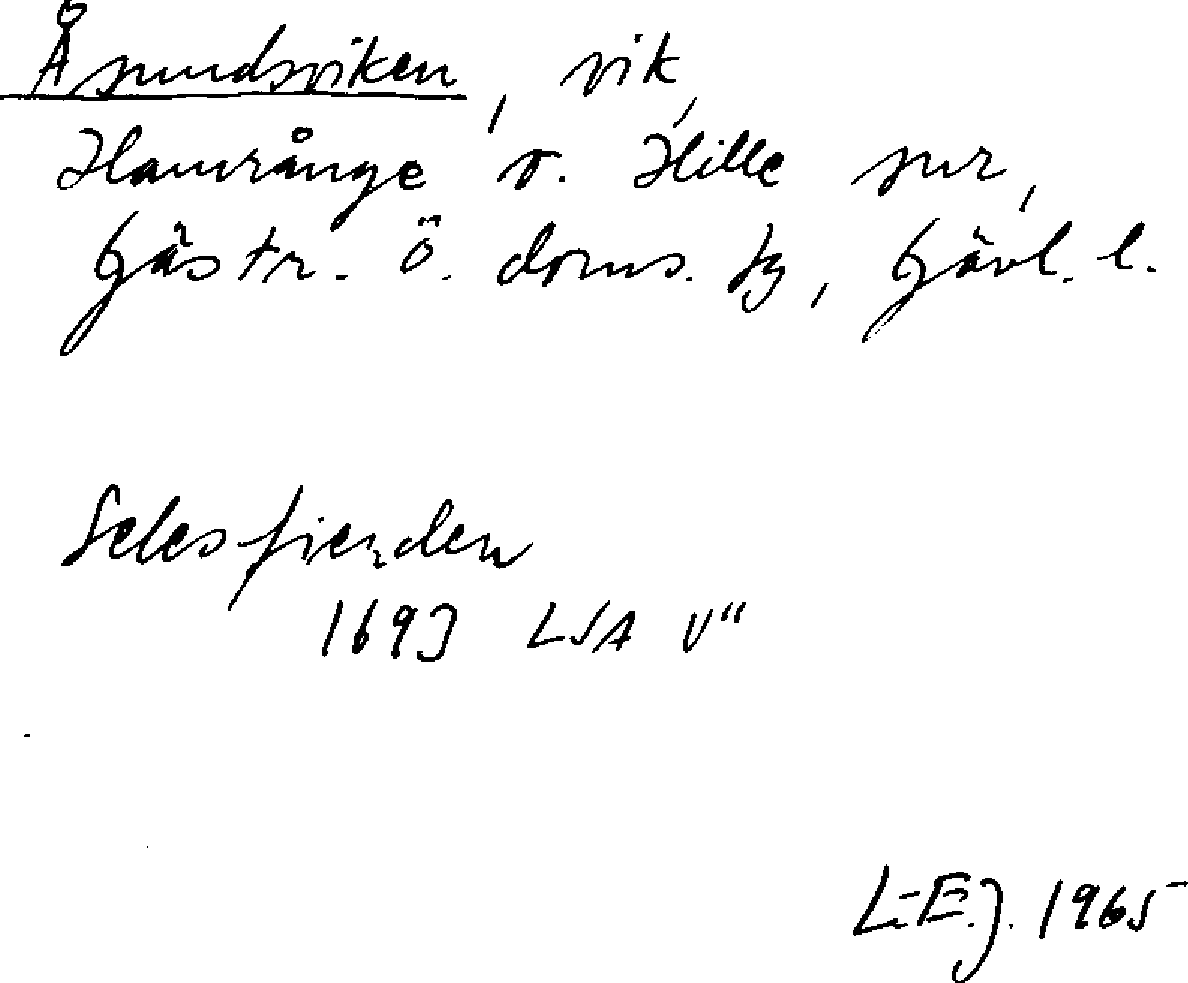 Åsundsviken, vik,
Hamrånge o. Hille snr,
Gästr. Ö. doms. tg, Gävl. l.
Selesfierden
1693 LSA V"
L-E.J. 1965